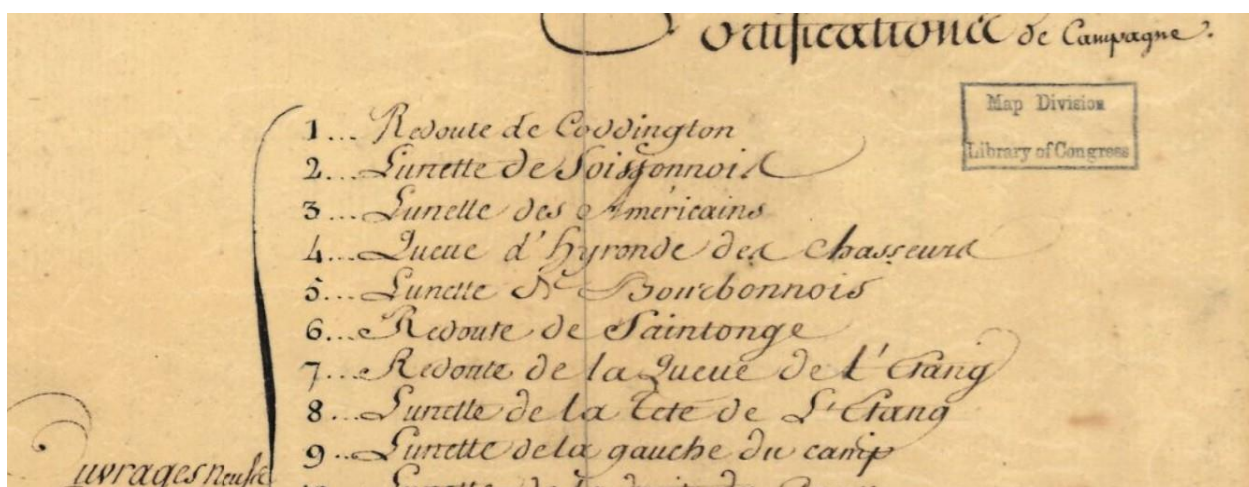 Fortifications de Campagne.
Map Division
Library of Congress
1... Redoute de Coddington
2... Lunette de Soissonnois
3... Lunette des Américains
4... Queue d'Hyronde des Chasseurs
5... Lunette de Bourbonnois
6... Redoute de Saintonge
7... Redoute de la Queue de l'Etang
8... Lunette de la Tete de L'Etang
9... Lunette de la gauche du camp
Ouvrages neufs
Lunette de la droite du